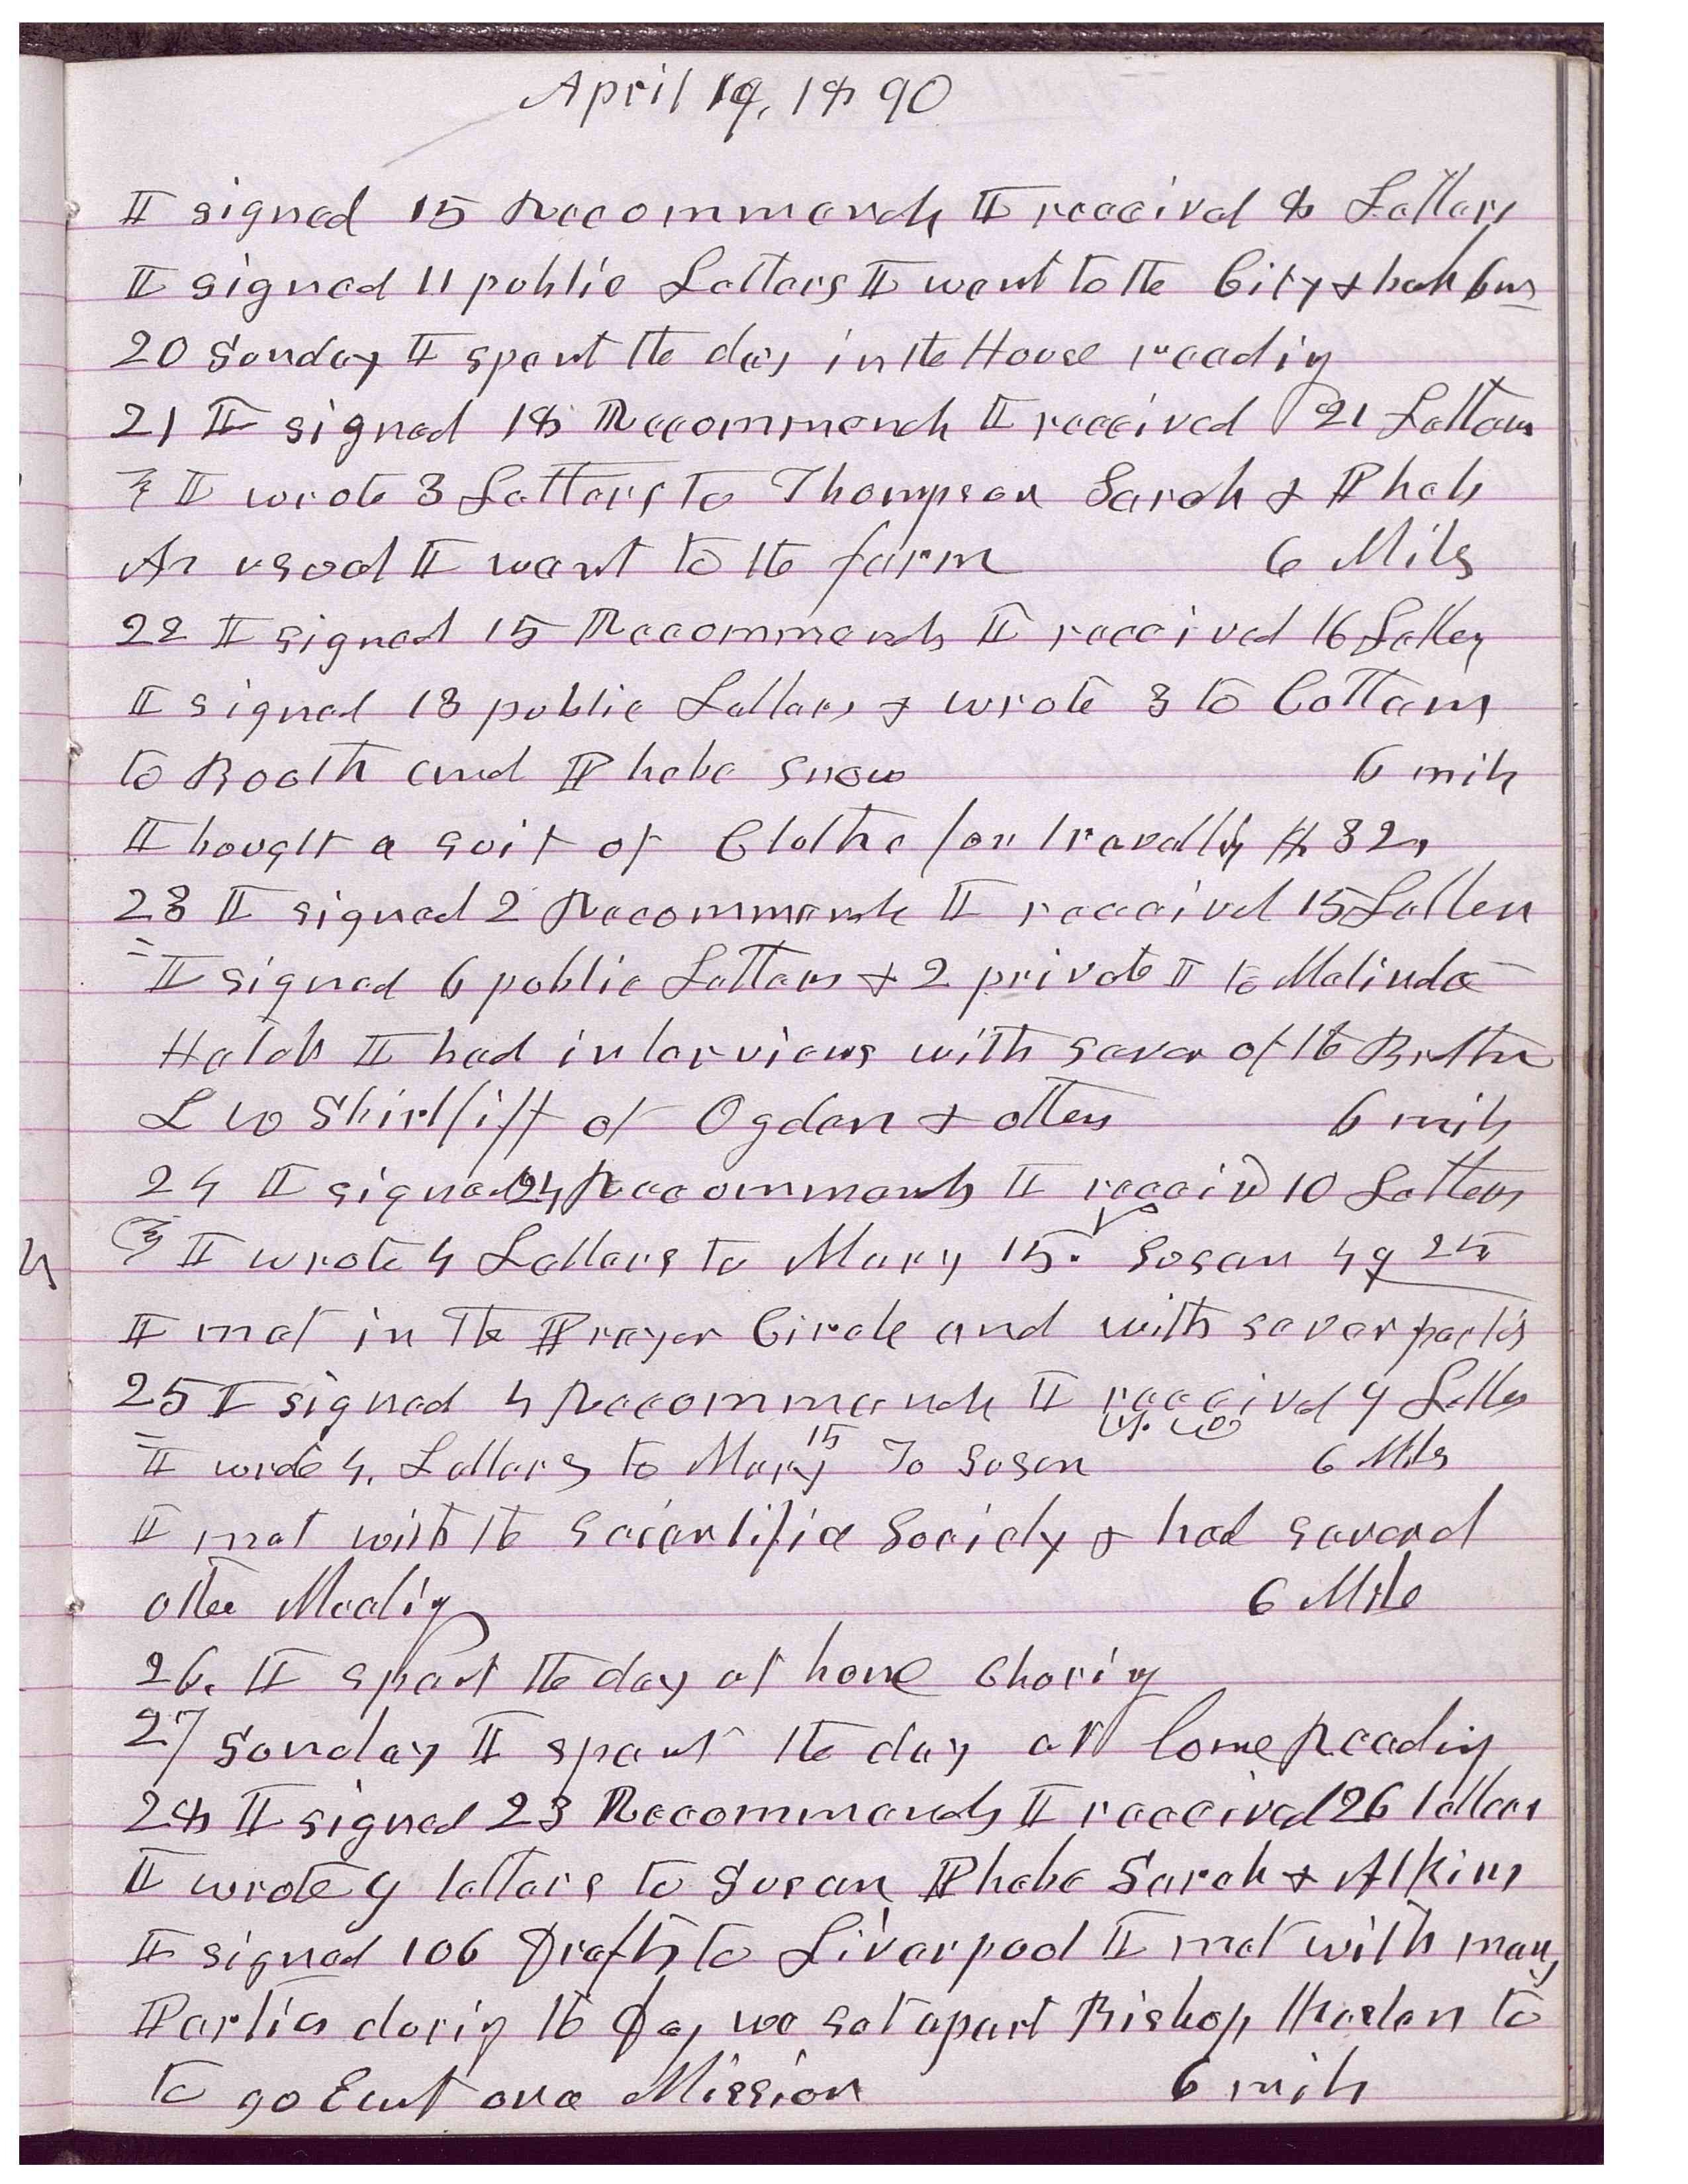 April 19, 1890
I signed 15 Recommends I received 8 Letters
I signed 11 public Letters I went to the City & back 6 m
20 Sunday I spent the day in the House reading
21 I signed 18 Recommends I received 21 Letters
I wrote 3 Letters to Thompson Sarah & Pheb
As usual I went to the farm 6 Miles
22 I signed 15 Recommends I received 16 Letters
I signed 13 public Letters & wrote 3 to Cottams
to Booth and Phebe Snow 6 mils
I bought a suit of Clothe for travelling $32,
23 I signed 2 Recommends I received 15 Letters
I signed 6 public Letters & 2 private I to Malinda
Hatch I had interviews with sever of the Brothr
L W Shirtliff of Ogden & others 6 mils
24 I signed 24 Recommends I received 10 Letters
I wrote 4 Letters to Mary 15. Susan 49
I met in the Prayer Circle and with sever parties
25 I signed 4 Recommends I received 9 Letters
I wrote 4. Letters to Mary 15 To Susan 6 Mils
I met with the Scientific Society & had several
other Meeting 6 Mile
26. I spent the day at home Choring
27 Sunday I spent the day at home Reading
28 I signed 23 Recommends I received 26 letters
I wrote 4 letters to Susan Phebe Sarah & Atkins
I signed 106 Drafts to Liverpool I met with many
Parties during the Day we set apart Bishop to
to go East on a Mission 6 mils